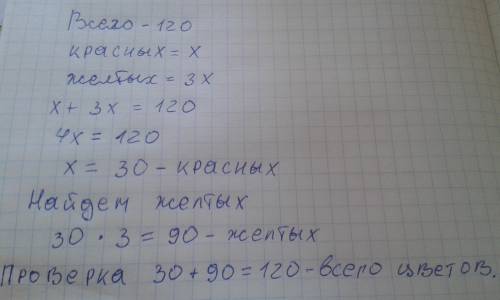 Всего - 120
красных = x
желтых = 3x
x + 3x = 120
4x = 120
x = 30 - красных
Найдем желтых
30 · 3 = 90 - желтых
Проверка 30 + 90 = 120 - всего цветов.